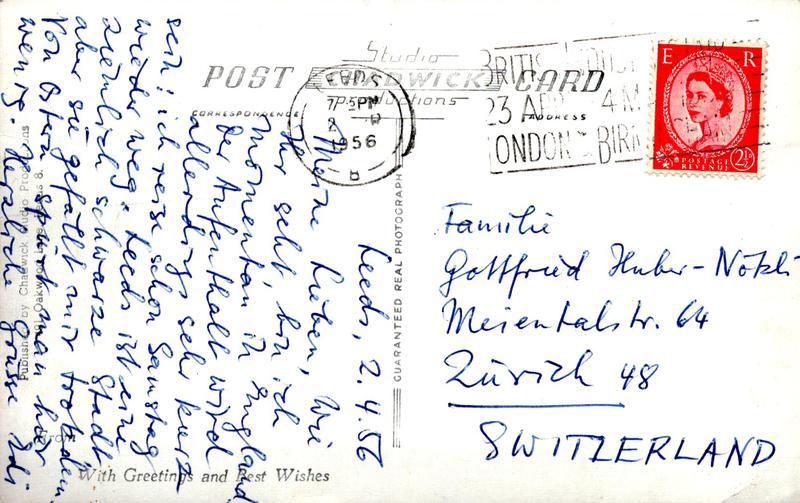 POST CARD
Studio
CHADWICK
Productions
CORRESPONDENCE
ADDRESS
LEEDS
7 - PM
2 APR
1956
BRITISH INDUSTRIES FAIR
23 APR - 4 MAY
LONDON & BIRMINGHAM
E R
POSTAGE
REVENUE
2½D
GUARANTEED REAL PHOTOGRAPH
Published by Chadwick Studio Productions
191 Oakwood Lane, Leeds 8.
Leeds, 2.4.56
Meine Lieben, Wie
Ihr seht, bin ich
momentan in England
der Aufenthalt wird
allerdings sehr kurz
sein: ich reise schon Samstag
wieder weg. Leeds ist eine
ziemlich schwarze Stadt
aber sie gefällt mir trotzdem.
Von Ostern spürt man hier
wenig. Herzliche Grüsse
Familie
Gottfried Huber-Nötzli
Meientalstr. 64
Zürich 48
SWITZERLAND
From
With Greetings and Best Wishes